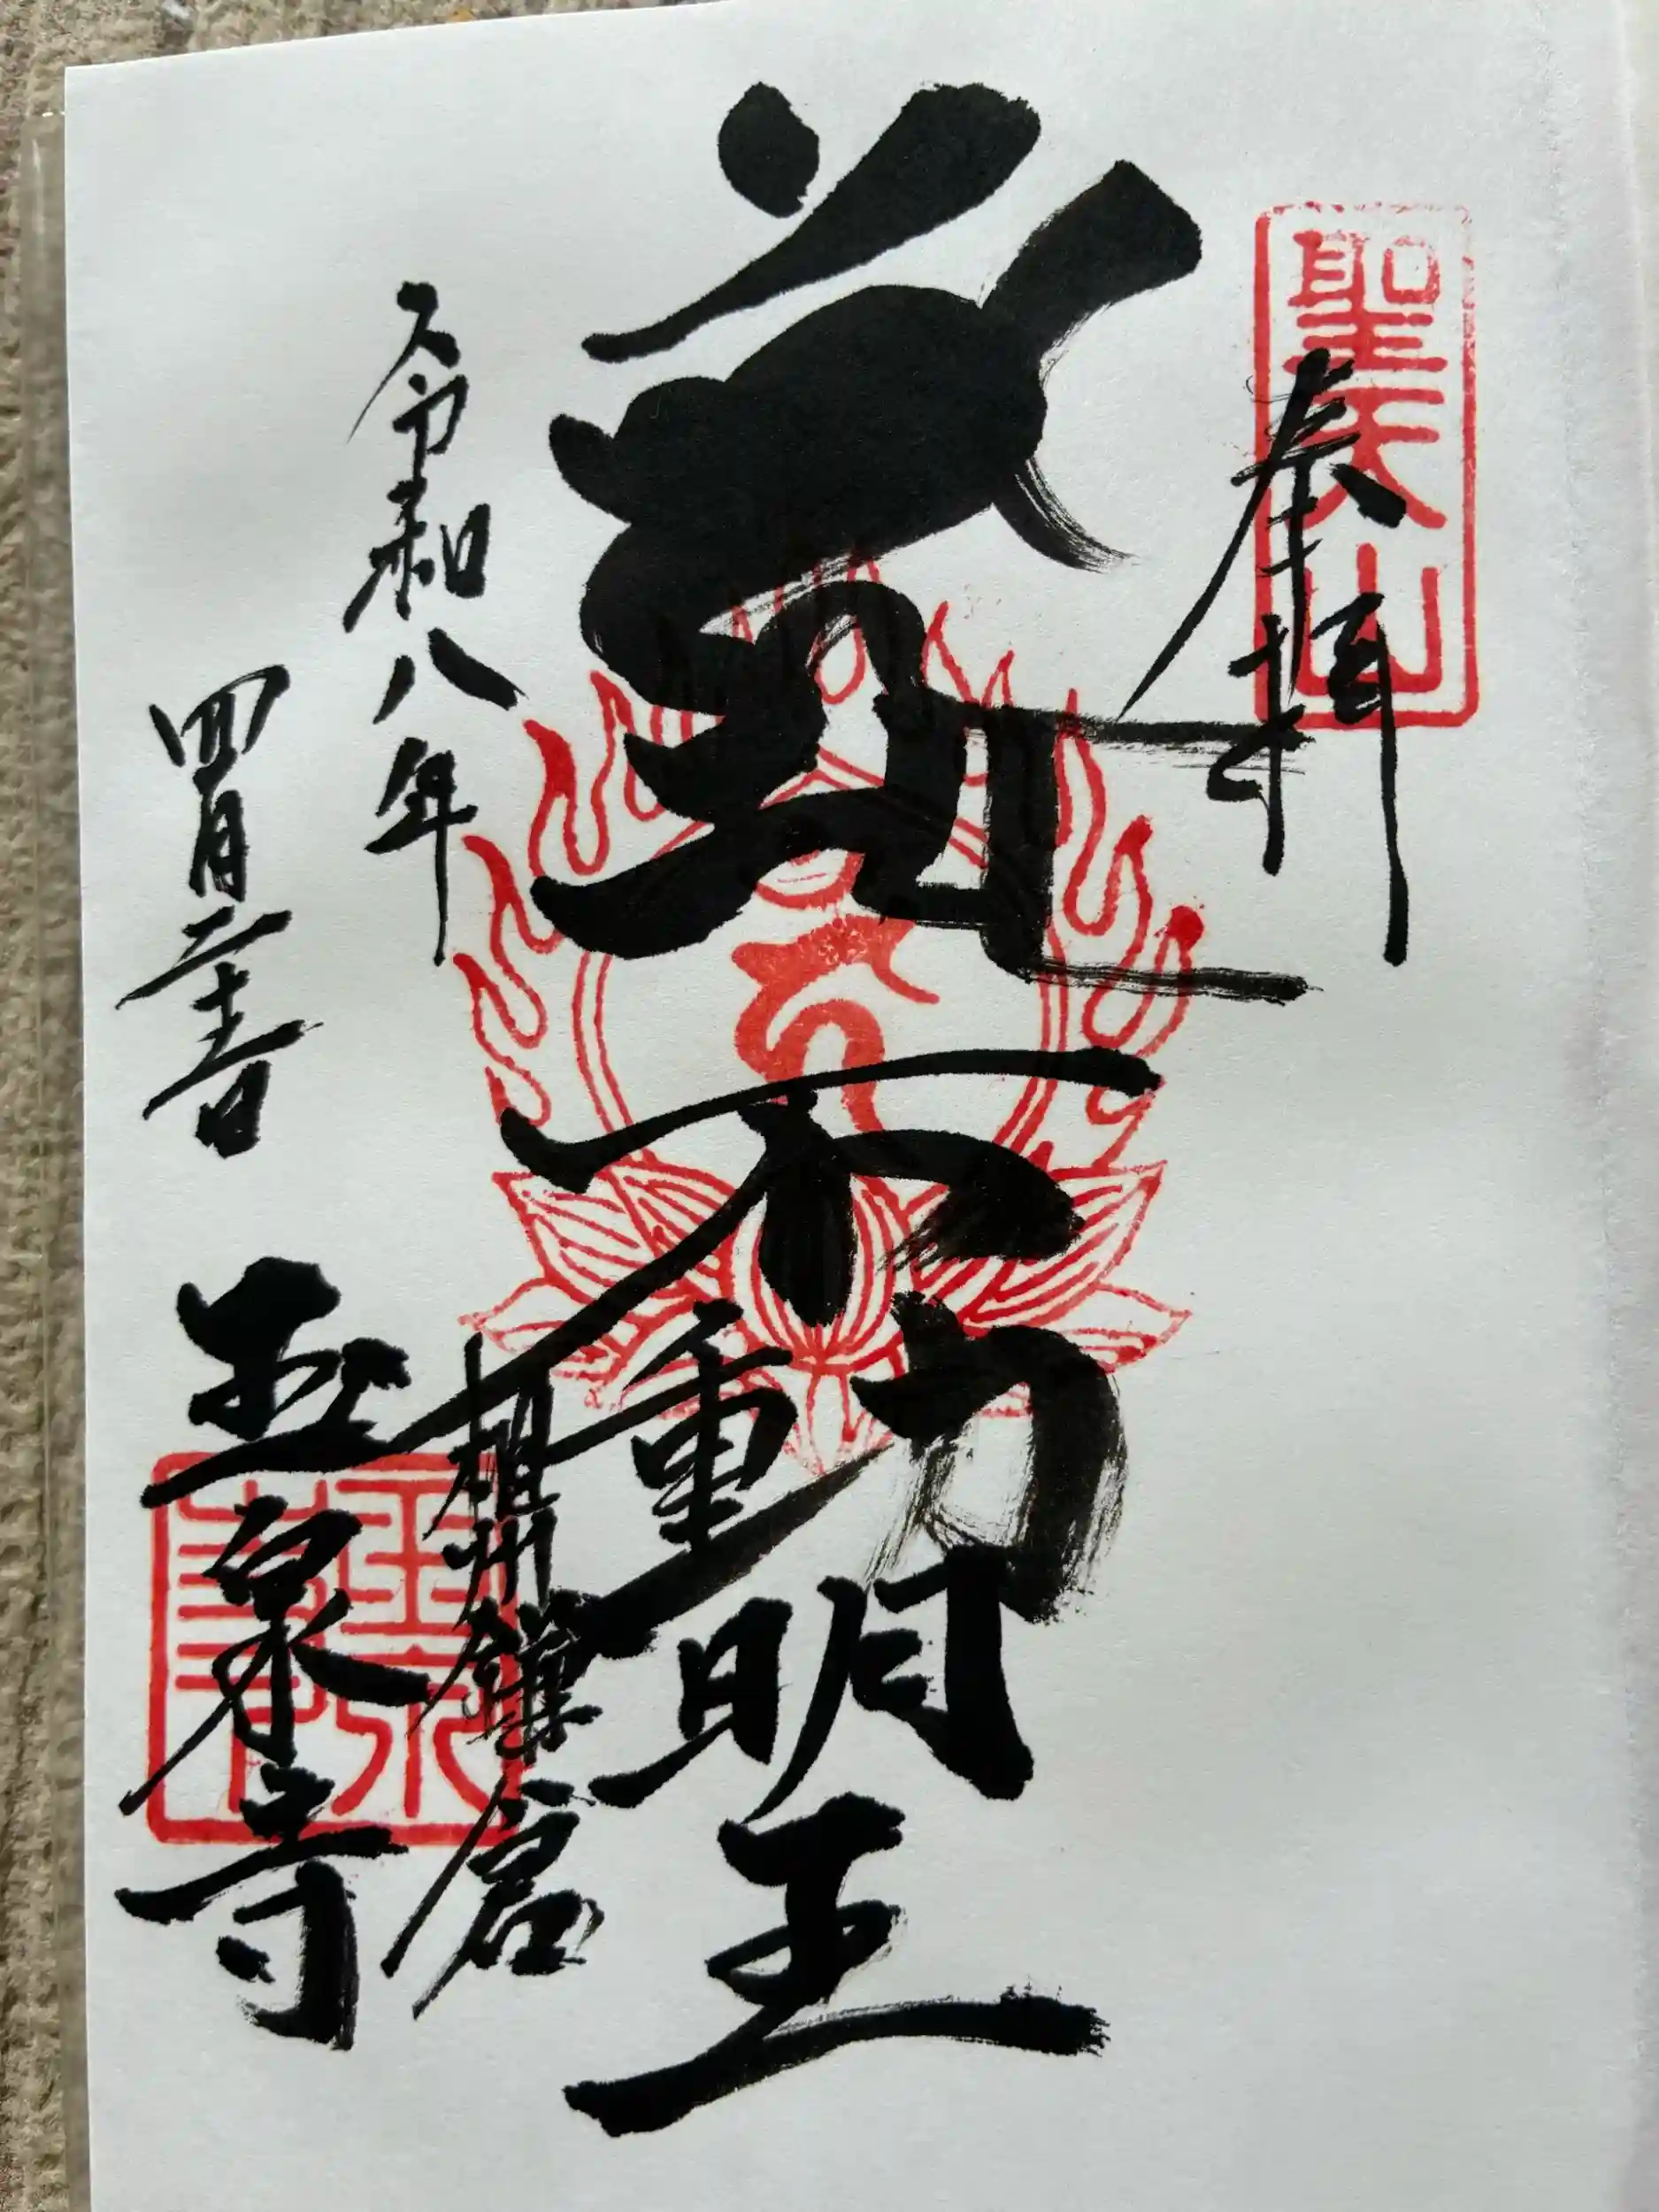 聖天山
奉拝
不動明王
相州鎌倉
令和八年
四月二十五日
玉泉寺
玉泉
寺印